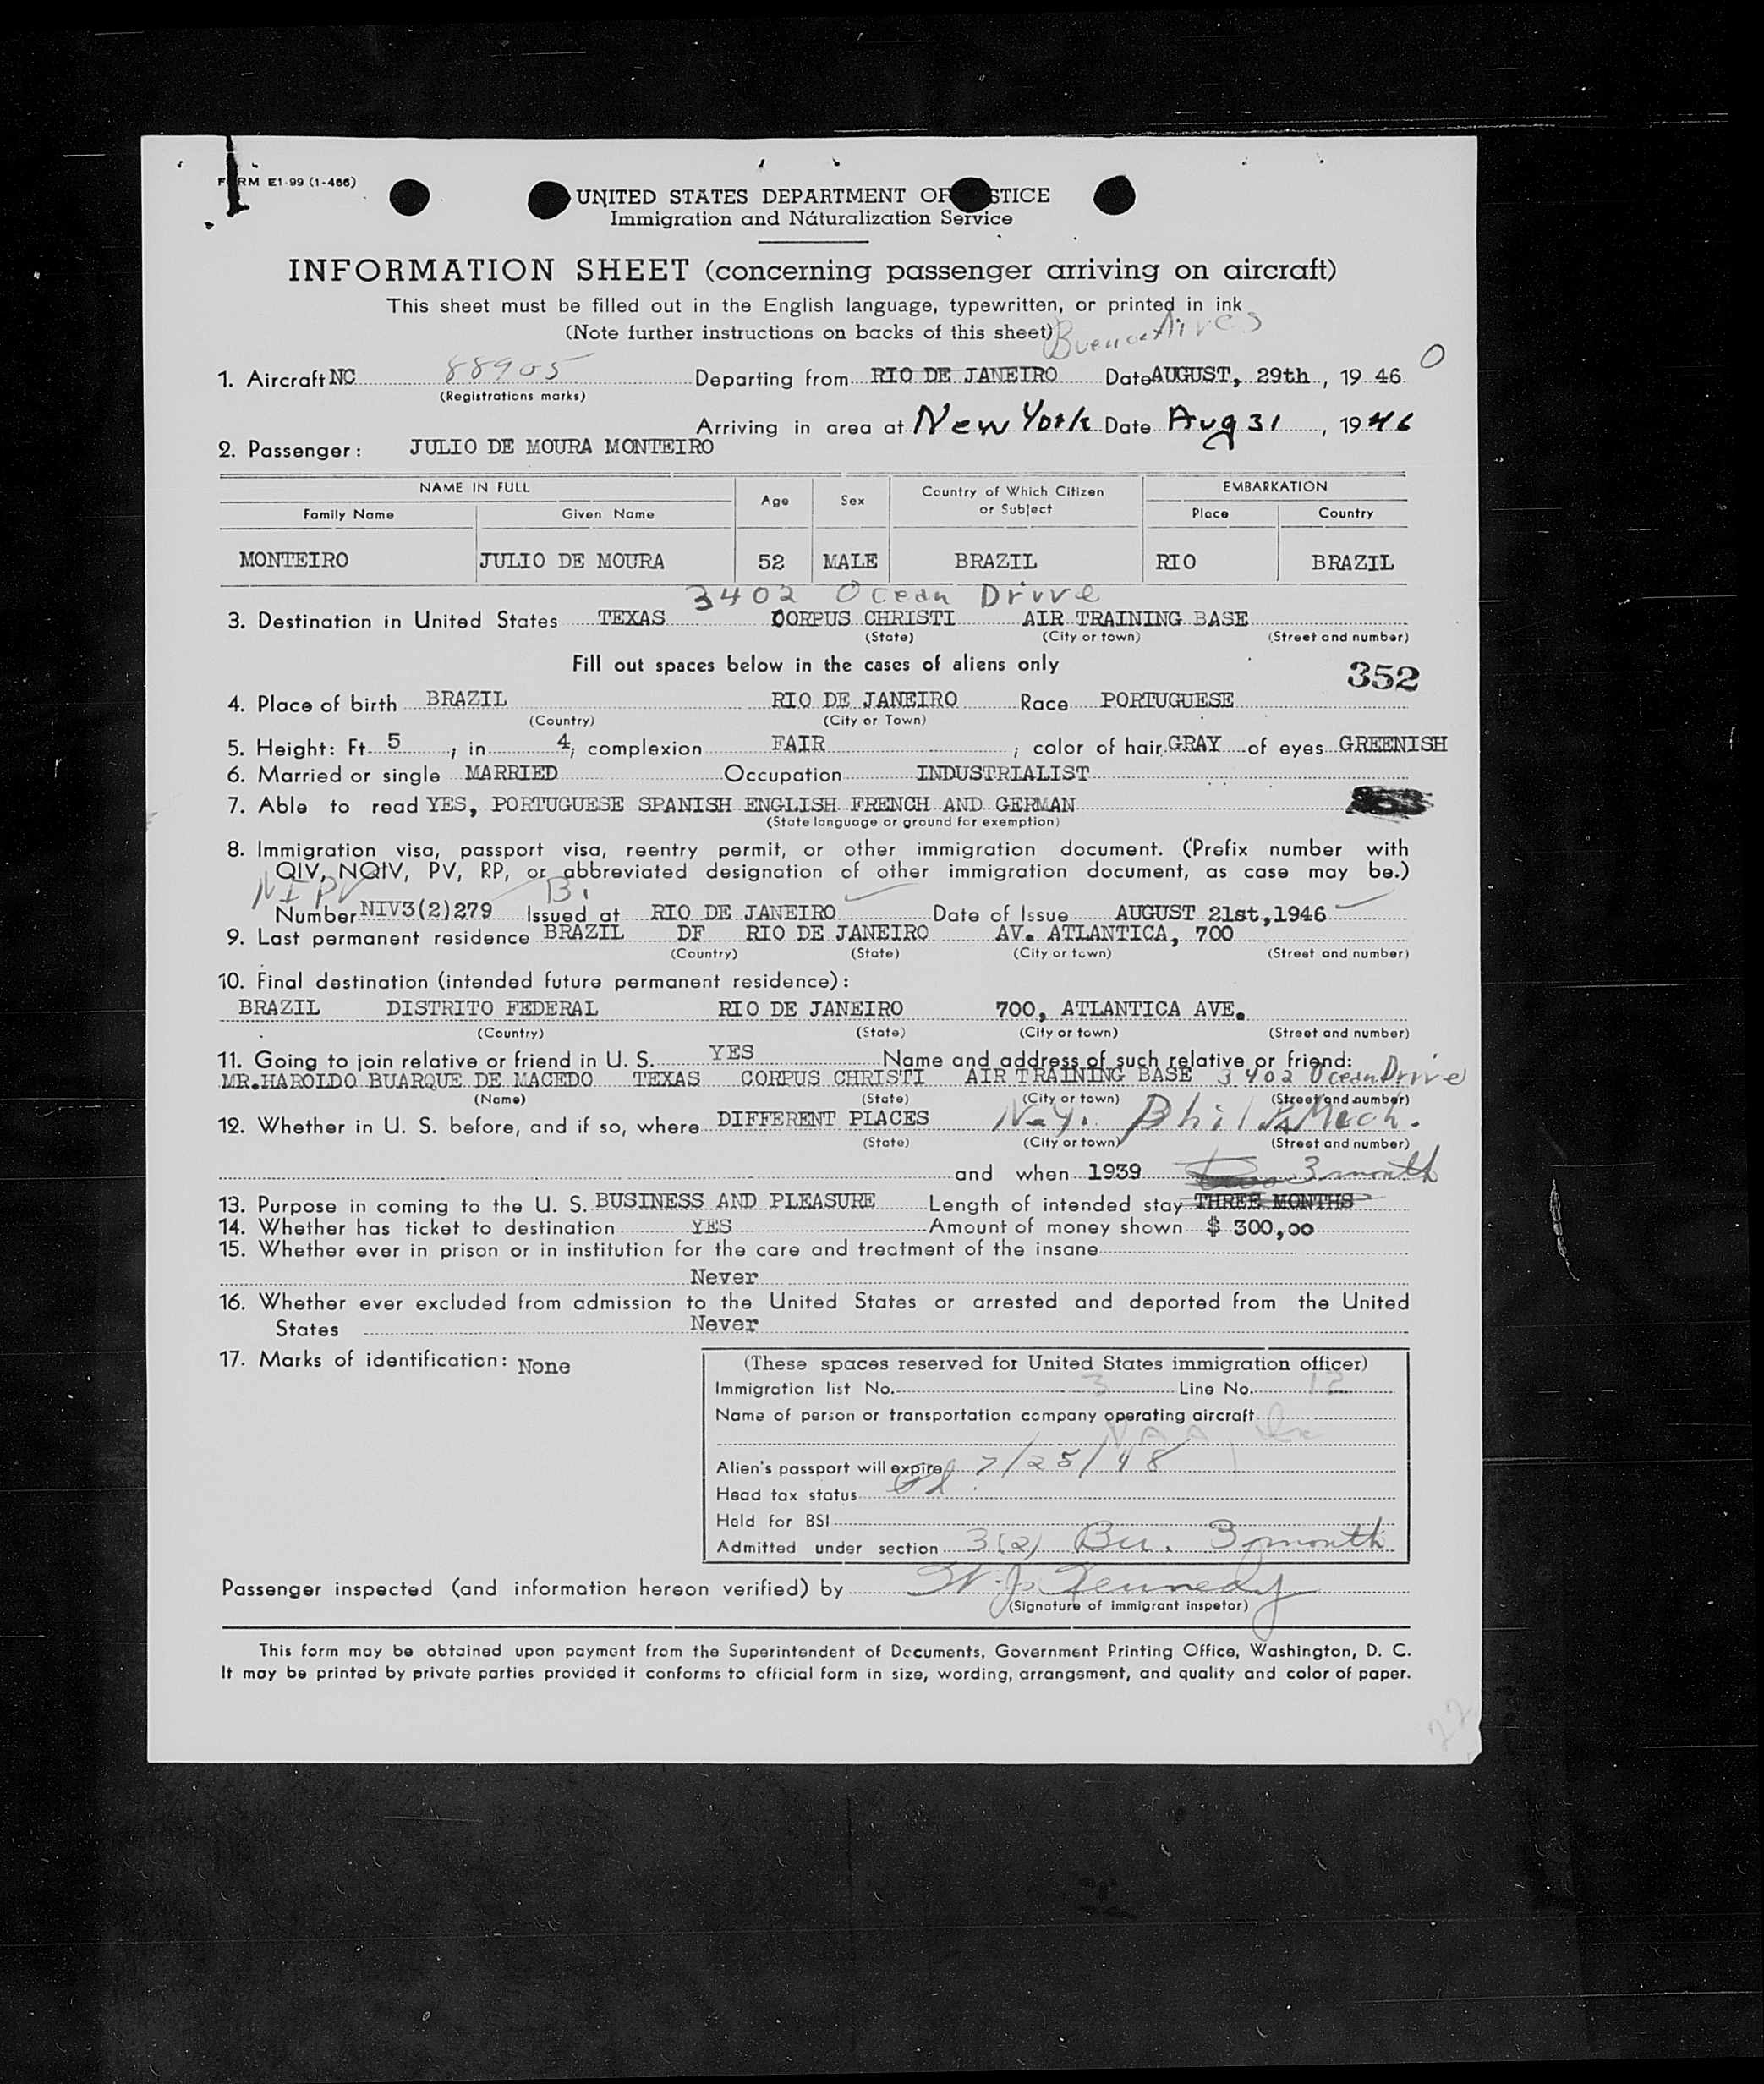 FORM E1-99 (1-466)
UNITED STATES DEPARTMENT OF JUSTICE
Immigration and Naturalization Service
INFORMATION SHEET (concerning passenger arriving on aircraft)
This sheet must be filled out in the English language, typewritten, or printed in ink
(Note further instructions on backs of this sheet) Buenos Aires
1. Aircraft NC 88905 Departing from RIO DE JANEIRO Date AUGUST, 29th, 1946 O
(Registrations marks)
Arriving in area at New York Date Aug 31, 1946
2. Passenger: JULIO DE MOURA MONTEIRO
NAME IN FULL Age Sex Country of Which Citizen or Subject EMBARKATION
Family Name Given Name Place Country
MONTEIRO JULIO DE MOURA 52 MALE BRAZIL RIO BRAZIL
3402 Ocean Drive
3. Destination in United States TEXAS CORPUS CHRISTI AIR TRAINING BASE
(State) (City or town) (Street and number)
Fill out spaces below in the cases of aliens only
352
4. Place of birth BRAZIL RIO DE JANEIRO Race PORTUGUESE
(Country) (City or Town)
5. Height: Ft. 5, in 4; complexion FAIR; color of hair GRAY of eyes GREENISH
6. Married or single MARRIED Occupation INDUSTRIALIST
7. Able to read YES, PORTUGUESE SPANISH ENGLISH FRENCH AND GERMAN
(State language or ground for exemption)
8. Immigration visa, passport visa, reentry permit, or other immigration document. (Prefix number with
QIV, NQIV, PV, RP, or abbreviated designation of other immigration document, as case may be.)
Number NIV3(2)279 Issued at RIO DE JANEIRO Date of Issue AUGUST 21st,1946
9. Last permanent residence BRAZIL DF RIO DE JANEIRO AV. ATLANTICA, 700
(Country) (State) (City or town) (Street and number)
10. Final destination (intended future permanent residence):
BRAZIL DISTRITO FEDERAL RIO DE JANEIRO 700, ATLANTICA AVE.
(Country) (State) (City or town) (Street and number)
11. Going to join relative or friend in U. S. YES Name and address of such relative or friend:
MR.HAROLDO BUARQUE DE MACEDO TEXAS CORPUS CHRISTI AIR TRAINING BASE 3402 Ocean Drive
(Name) (State) (City or town) (Street and number)
12. Whether in U. S. before, and if so, where DIFFERENT PLACES N.Y.
(State) (City or town) (Street and number)
and when 1939 3 month
13. Purpose in coming to the U. S. BUSINESS AND PLEASURE Length of intended stay THREE MONTHS
14. Whether has ticket to destination YES Amount of money shown $ 300,00
15. Whether ever in prison or in institution for the care and treatment of the insane
Never
16. Whether ever excluded from admission to the United States or arrested and deported from the United
States Never
17. Marks of identification: None
(These spaces reserved for United States immigration officer)
Immigration list No. 3 Line No. 12
Name of person or transportation company operating aircraft
PAA
Alien's passport will expire 7/25/48
Head tax status
Held for BSI
Admitted under section 3(2) Bu. 3 month
Passenger inspected (and information hereon verified) by Kennedy
(Signature of immigrant inspetor)
This form may be obtained upon payment from the Superintendent of Documents, Government Printing Office, Washington, D. C.
It may be printed by private parties provided it conforms to official form in size, wording, arrangement, and quality and color of paper.
22